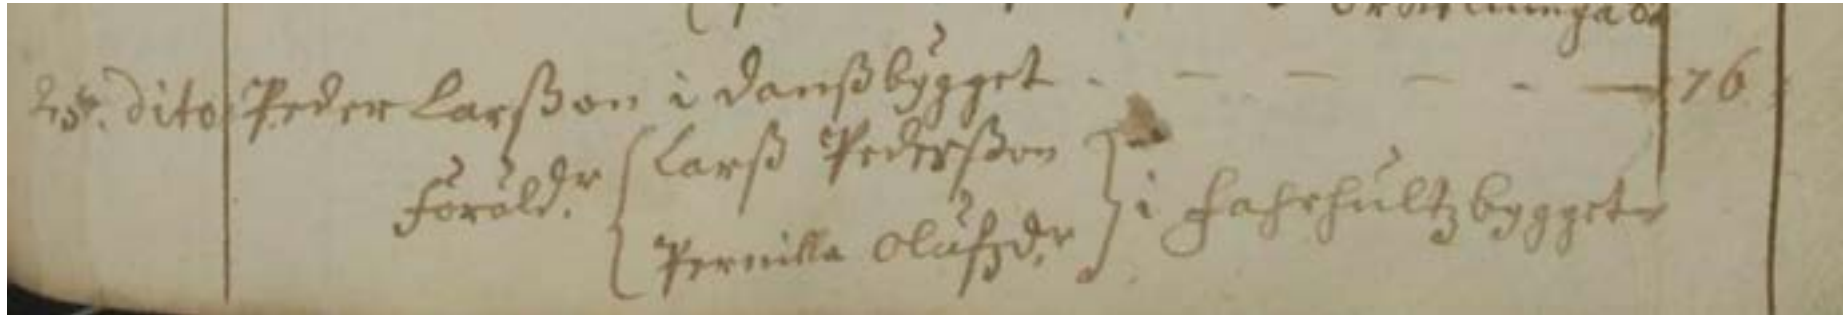 dito Peder Larßon i Danßbygget - - - - - 76
Föräld.r { Larß Pederßon
Pernilla Olufzd.r } i Fahrhultzbygget